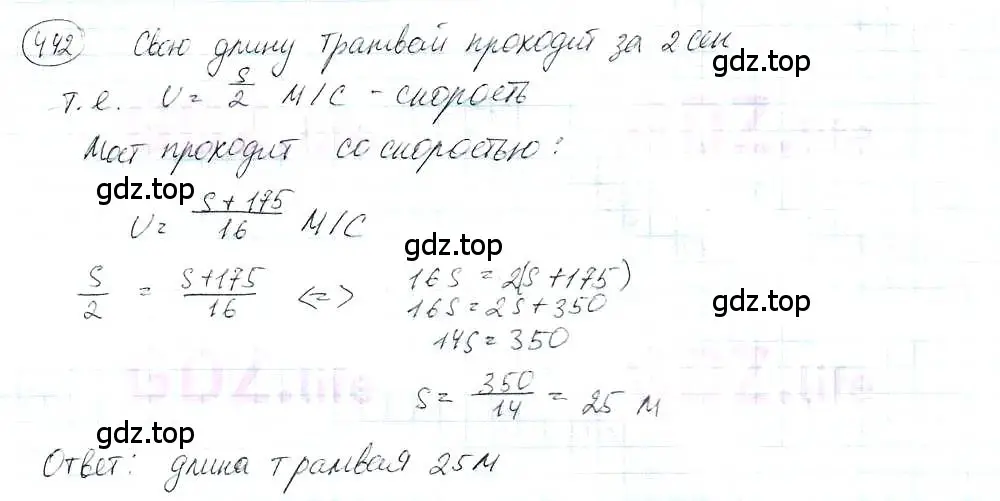 442 Свою длину трамвай проходит за 2 сек
т.е. V = S/2 м/с - скорость
gdz.top
Мост проходит со скоростью:
gdz.top
V = (S + 175)/16 м/с
gdz.top
S/2 = (S+175)/16 <=> 16S = 2(S+175)
16S = 2S + 350
gdz.top
14S = 350
S = 350/14 = 25 м
gdz.top
gdz.top
Ответ: длина трамвая 25м